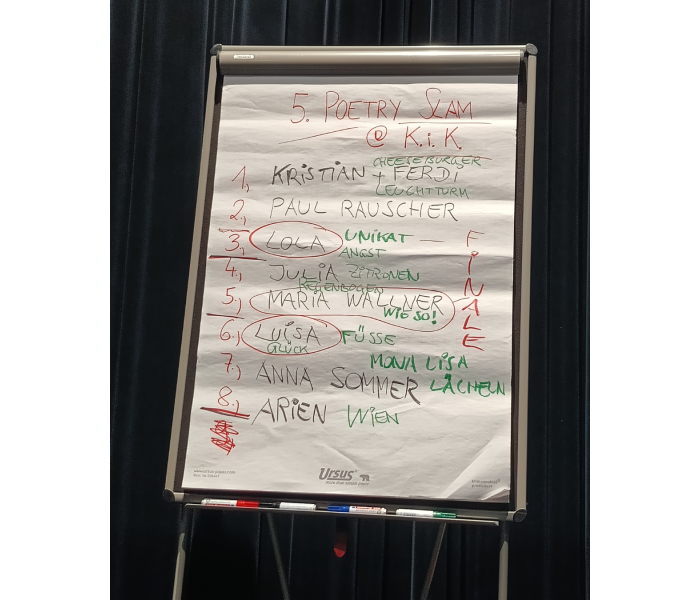 5. POETRY SLAM
@ K.i.K.
CHEESEBURGER
1, KRiSTiAN + FERDi
LEUCHTTURM
2, PAUL RAUSCHER
3., LOLA UNiKAT — FiNALE
ANGST
4., JULiA ZiTRONEN
REGENBOGEN
5., MARiA WALLNER
WiESO!
6., LUiSA FÜSSE
GLÜCK
MONA LiSA
7., ANNA SOMMER LÄCHELN
8., ARiEN WiEN
URSUS